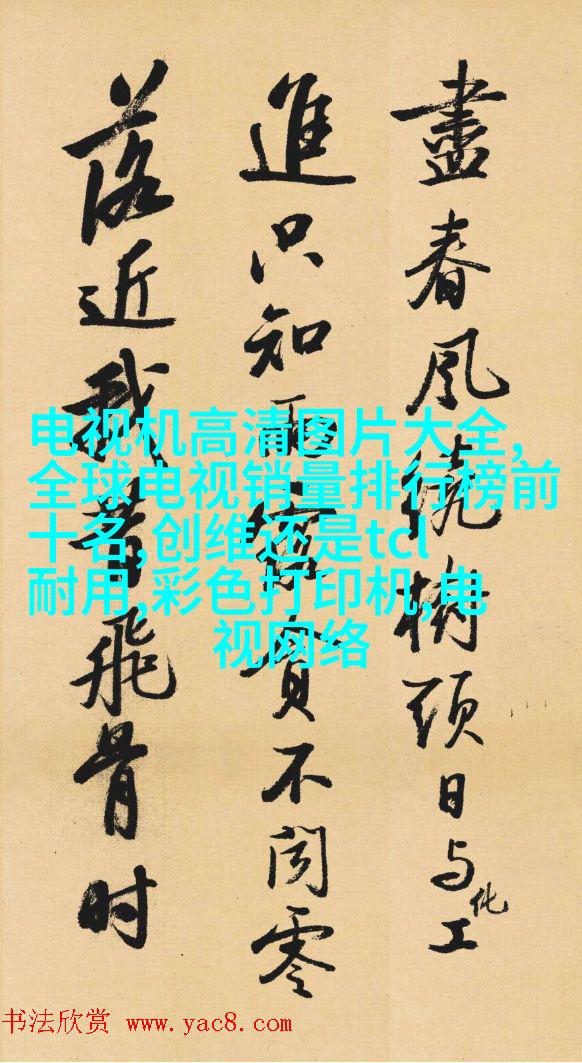 盡春風繞樹頭日与化工
進只知雨露貪不聞零
落近我昔飛骨时
电视机高清图片大全,
全球电视销量排行榜前
十名,创维还是tcl
耐用,彩色打印机,电
视网络
书法欣赏 www.yac8.com